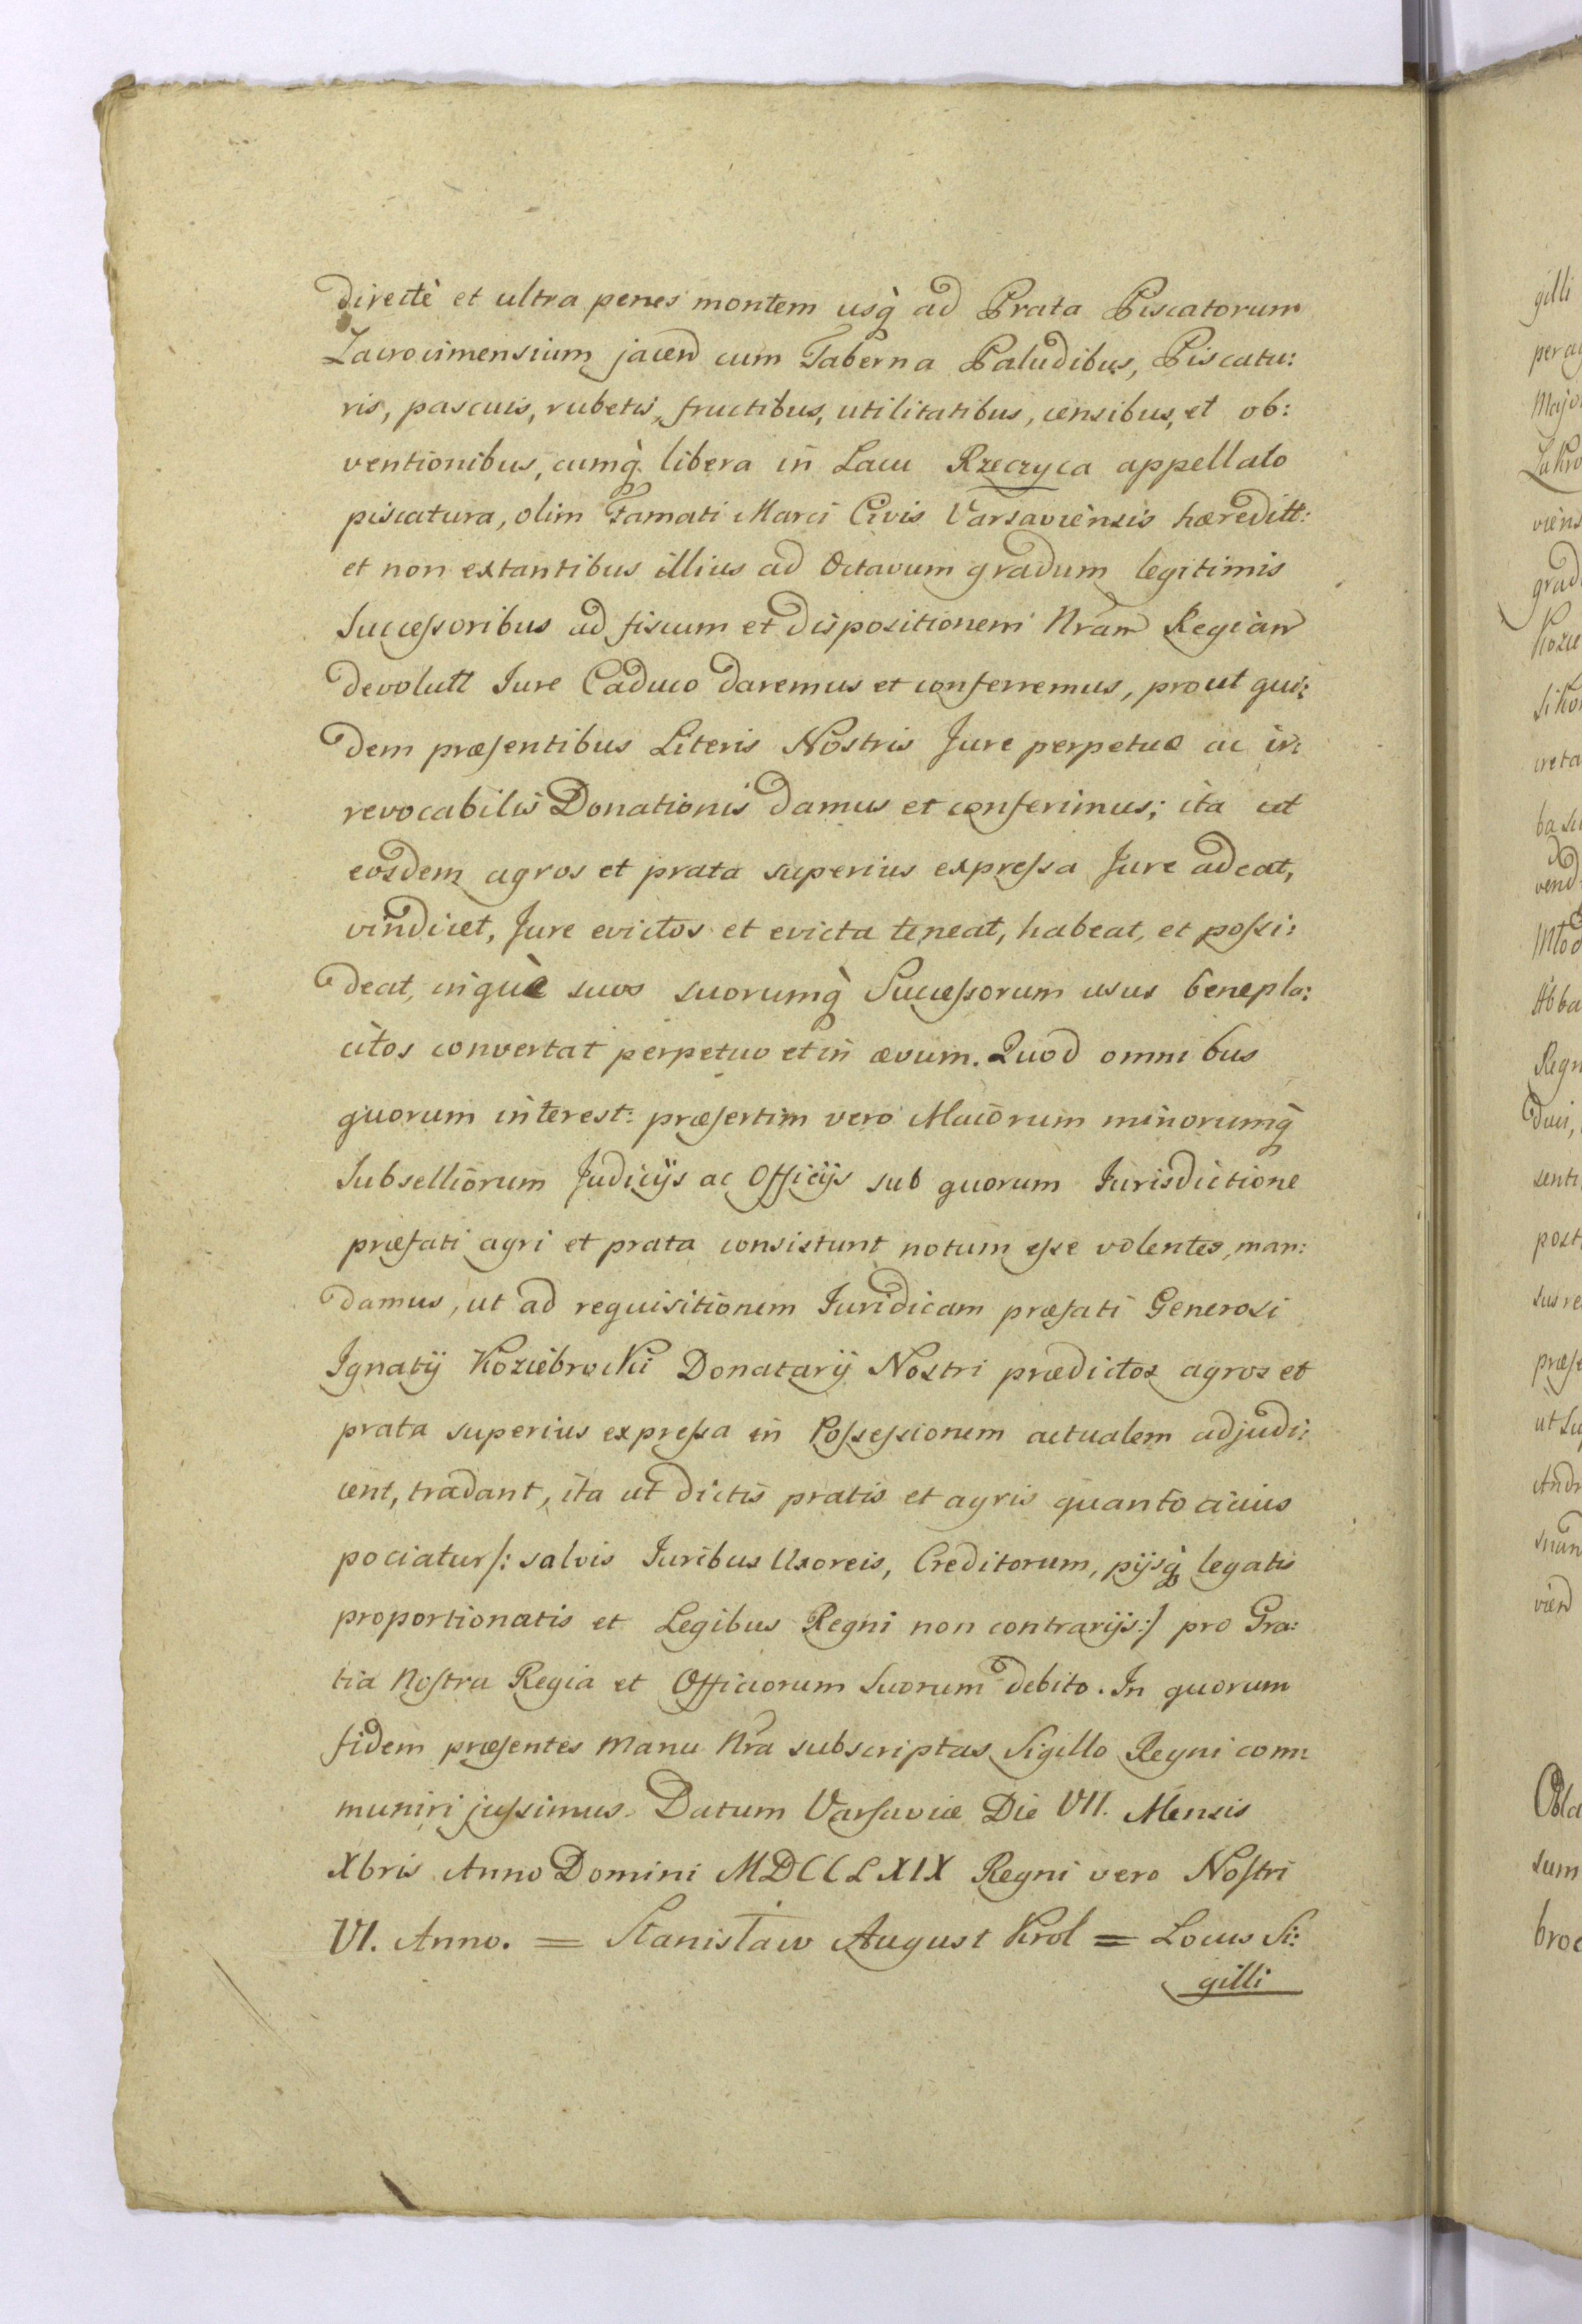 directè et ultra penes montem usq̀ ad Prata Piscatorum
Zacrocimensium jacend cum Taberna Paludibus, Piscatu:
ris, pascuis, rubetis, fructibus, utilitatibus, censibus, et ob:
ventionibus, cumq̀ libera in Lacu Rzeczyca appellato
piscatura, olim Famati Marci Civis Varsaviensis hæreditt:
et non extantibus illius ad Octavum gradum legitimis
Successoribus ad fiscum et dispositionem Nram Regiam
devolutt Jure Caduco daremus et conferremus, prout qui:
dem præsentibus Literis Nostris Jure perpetuæ ac ir:
revocabilis Donationis damus et conferimus; ita ut
eosdem agros et prata superius expressa Jure adeat,
vindicet, Jure evictos et evicta teneat, habeat, et possi:
deat, inquè suos suorumq̀ Successorum usus benepla:
citos convertat perpetuo et in ævum. Quod omnibus
quorum interest: præsertim vero Maiorum minorumq̀
Subselliorum Judicijs ac Officijs sub quorum Jurisdictione
præfati agri et prata consistunt notum esse volentes, man:
damus, ut ad requisitionem Juridicam præfati Generosi
Ignatij Koziebrocki Donatarij Nostri prædictos agros et
prata superius expressa in Possessionem actualem adjudi:
cent, tradant, ita ut dictis pratis et agris quanto cicius
pociatur /: salvis Juribus Uxoreis, Creditorum, pijsq̀ legatis
proportionatis et Legibus Regni non contrarijs :/ pro Gra:
tia Nostra Regia et Officiorum Suorum debito. In quorum
fidem præsentes Manu Nra subscriptas Sigillo Regni com:
muniri jussimus. Datum Varsaviæ Die VII. Mensis
Xbris Anno Domini MDCCLXIX Regni vero Nostri
VI. Anno. = Stanisław August Krol = Locus Si:
gilli